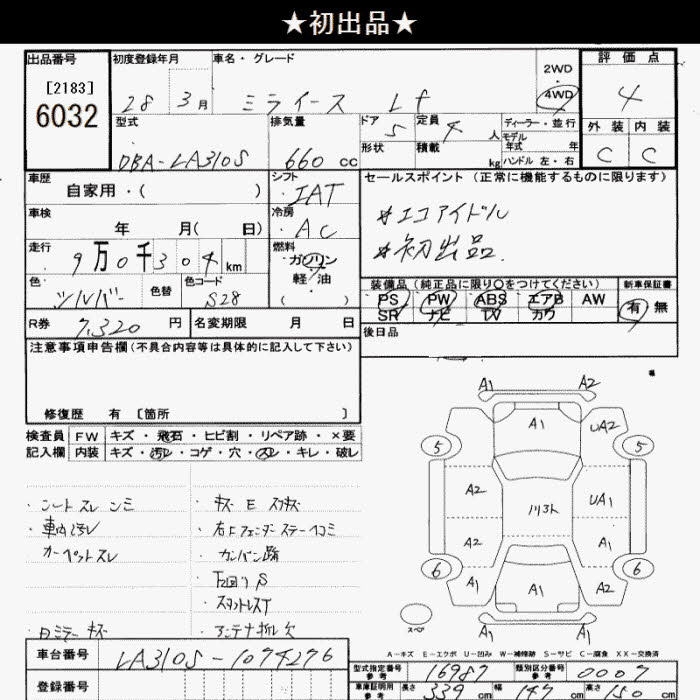 ★初出品★
出品番号
[2183]
6032
初度登録年月
28 3月
車名・グレード
ミライース Lf
2WD
4WD
評価点
4
外装 内装
C C
型式
DBA-LA310S
排気量
660 cc
ドア 5
形状
定員 4 人
積載 kg
ディーラー・並行
モデル
年式 年
ハンドル 左・右
車歴
自家用・( )
シフト
IAT
車検
年 月( 日)
冷房
AC
走行
9万0千304 km
燃料
ガソリン
軽・油
( )
色
シルバー
色替
色コード
S28
R券 7,320 円
名変期限 月 日
セールスポイント (正常に機能するものに限ります)
#エコアイドル
#初出品
装備品(純正品に限り○をつけてください)
PS PW ABS エアB AW
SR ナビ TV カワ
新車保証書
有 無
後日品
注意事項申告欄(不具合内容等は具体的に記入して下さい)
修復歴 有 [箇所 ]
検査員
記入欄
FW キズ・飛石・ヒビ割・リペア跡・×要
内装 キズ・汚レ・コゲ・穴・スレ・キレ・破レ
・シートスレ シミ
・車内汚レ
カーペットスレ
・キズ E スリキズ
・右Fフェンダーステーコミ
・下回りS
・アンテナ折レ欠
・日ミラーキズ
A1 A2
A1
UA2
5 5
A2
UA1
A2
A1
6 6
A1
A1
A2
A1
スペア
A-キズ E-エクボ U-凹み W-補修跡 S-サビ C-腐食 XX-交換済
車台番号
LA310S-1074276
登録番号
型式指定番号
参考
16987
類別区分番号
参考
0007
車庫証明用
参考
長さ 339 cm 幅 147 cm 高さ 150 cm